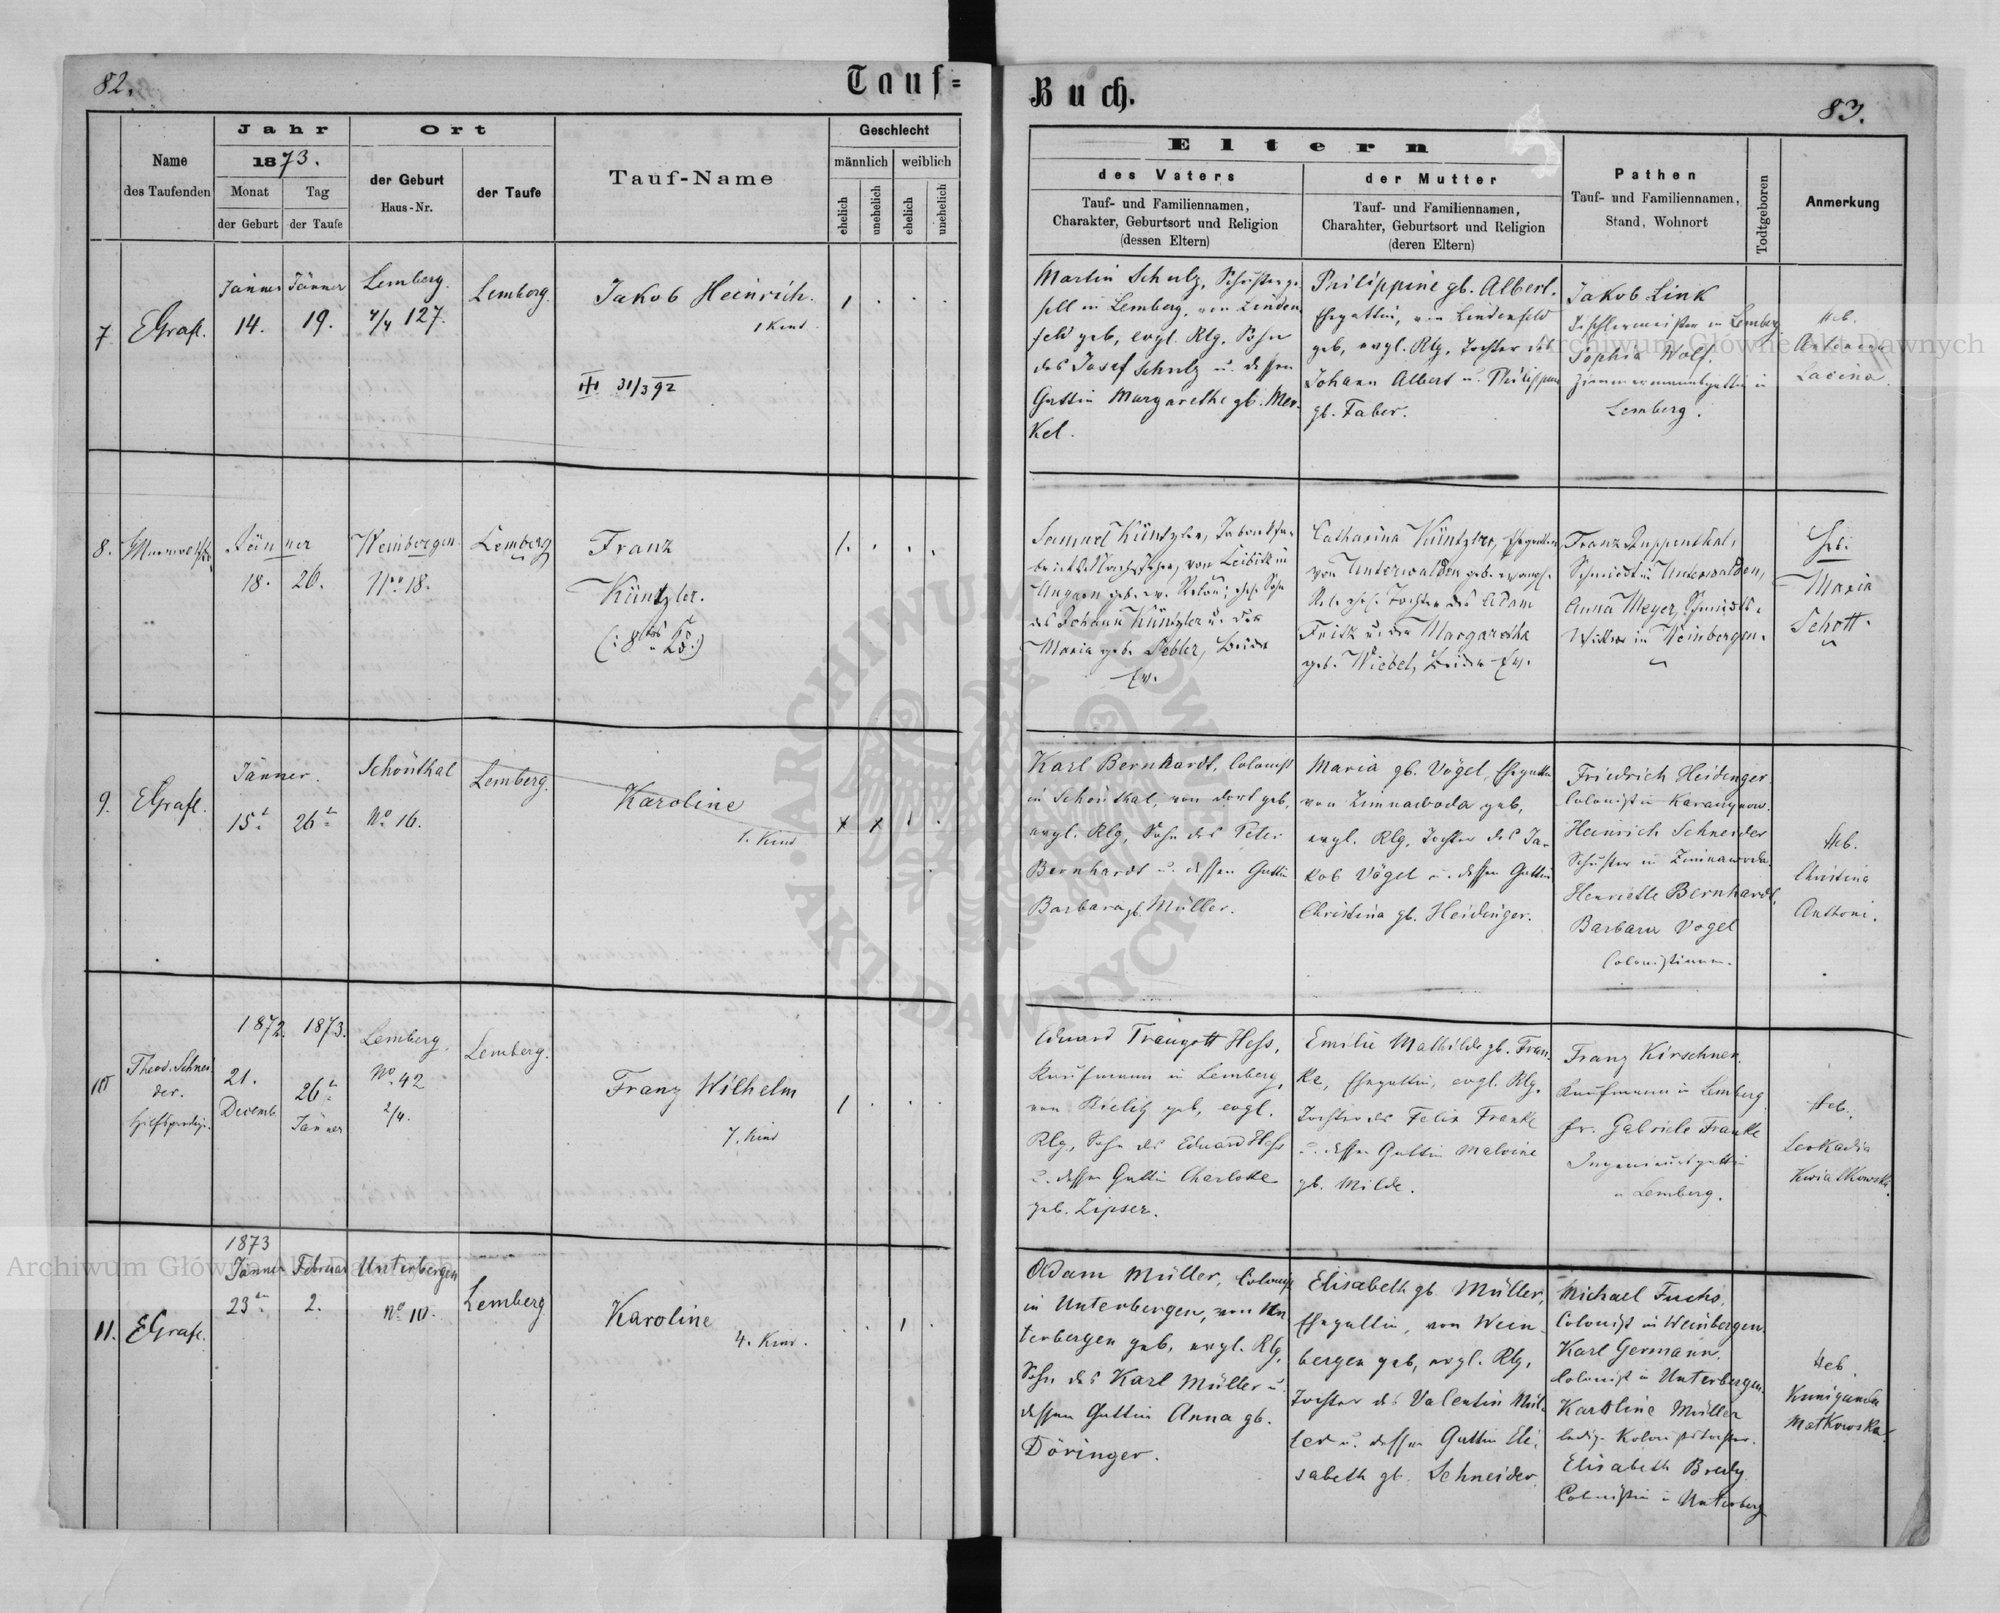 82.
Tauf=
Name
des Taufenden
Jahr
1873.
Monat
der Geburt
Tag
der Taufe
Ort
der Geburt
Haus-Nr.
der Taufe
Tauf-Name
Geschlecht
männlich
weiblich
ehelich
unehelich
ehelich
unehelich
7
EGrafl.
Jänner
14.
Jänner
19.
Lemberg.
4/4 127.
Lemberg.
Jakob Heinrich.
1 Kind.
31/3 92
8.
Jänner
18.
26.
Weinbergen
Nro 18.
Lemberg
Franz
Küntzler.
9.
EGrafl.
Jänner.
15t
26t
Schönthal
No 16.
Lemberg.
Karoline
1. Kind
10
Theod. Schnei
der.
1872.
21.
Decemb.
1873.
26t
Jänner
Lemberg.
No. 42
2/4.
Lemberg.
Franz Wilhelm
7. Kind
11.
EGrafl.
1873
Jänner
23t
Februar
2.
Unterbergen
No 10.
Lemberg
Karoline
4. Kind.
Buch.
83.
Eltern
des Vaters
Tauf- und Familiennamen,
Charakter, Geburtsort und Religion
(dessen Eltern)
der Mutter
Tauf- und Familiennamen,
Charahter, Geburtsort und Religion
(deren Eltern)
Pathen
Tauf- und Familiennamen,
Stand, Wohnort
Todtgeboren
Anmerkung
Martin Schulz, Schusterge-
sell in Lemberg, von Linden
feld geb, evgl. Rlg, Sohn
des Josef Schulz u. dessen
Gattin Margarethe gb. Mer-
kel.
Philippine gb. Albert.
Ehegattin, von Lindenfeld
geb, evgl. Rlg, Tochter des
Johann Albert u. Philippine
gb. Faber.
Jakob Link
Tischlermeister in Lemberg
Sophia Wolf.
Zimmermannsgattin in
Lemberg.
Heb.
Antonina
Lacina.
Samuel Küntzler,
von Leibitz in
Ungarn geb. ev. Relon; ehel. Sohn
des Johann Küntzler u. der
Maria geb. Pebler, beide
Ev.
Catharina Küntzler, Ehegattin
von Unterwalden geb. evangl.
Rel. ehel. Tochter des Adam
Fritz u. der Margaretha
geb. Wiebel, beide Ev.
Franz Ruppenthal,
Schmidt in Unterwalden,
Anna Meyer, Schmidts-
Wittwe in Weinbergen.
Heb.
Maria
Schott.
Karl Bernhardt, Colonist
in Schönthal, von dort geb,
evgl. Rlg, Sohn des Peter
Bernhardt u. dessen Gattin
Barbara gb. Müller.
Maria gb. Vögel, Ehegattin
von Zimnawoda geb,
evgl. Rlg, Tochter des Ja-
kob Vögel u. dessen Gattin
Christina gb. Heidinger.
Friedrich Heidinger
Colonist in
Heinrich Schneider
Schuster in Zimnawoda
Henriette Bernhardt,
Barbara Vogel
Colonistinnen.
Heb.
Christina
Antoni.
Eduard Traugott Hess,
Kaufmann in Lemberg,
von Bielitz geb, evgl.
Rlg, Sohn des Eduard Hess
u. dessen Gattin Charlotte
geb. Zipser.
Emilie Mathilde gb. Fran-
ke, Ehegattin, evgl. Rlg.
Tochter des Felix Franke
u. dessen Gattin Malvine
gb. Milde.
Franz Kirschner.
Kaufmann in Lemberg
fr. Gabriele Franke
Ingenieursgattin
in Lemberg.
Heb.
Leokadia
Kwiatkowska.
Adam Müller, Colonist
in Unterbergen, von Un
terbergen geb, evgl. Rlg,
Sohn des Karl Müller u.
dessen Gattin Anna gb.
Döringer.
Elisabeth gb. Müller,
Ehegattin, von Wein-
bergen geb, evgl. Rlg,
Tochter des Valentin Mül-
ler u. dessen Gattin Eli-
sabeth gb. Schneider.
Michael Fuchs.
Colonist in Weinbergen.
Karl Germann.
Colonist in Unterbergen.
Karoline Müller
ledige Kolonistochter.
Elisabeth
Colonistin in Unterberg
Heb
Kunigunda
Matkowska.
Archiwum Główne Akt Dawnych
Archiwum Główne Akt Dawnych
ARCHIWUM GŁÓWNE AKT DAWNYCH